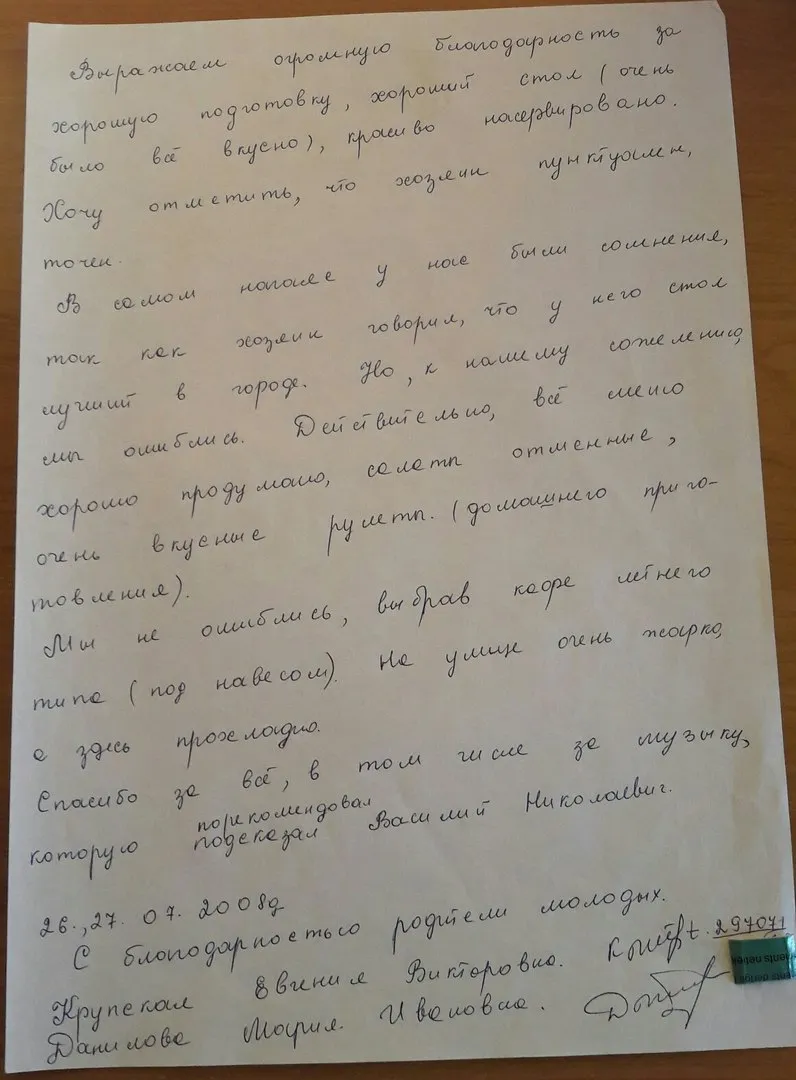 Выражаем огромную благодарность за
хорошую подготовку, хороший стол (очень
было всё вкусно), красиво насервировано.
Хочу отметить, что хозяин пунктуален,
точен.
В самом начале у нас были сомнения,
так как хозяин говорил, что у него стол
лучший в городе. Но, к нашему сожелению,
мы ошиблись. Действительно, всё меню
хорошо продумано, салаты отменные,
очень вкусные рулеты. (домашнего приго-
товления).
Мы не ошиблись, выбрав кафе летнего
типа (под навесом). На улице очень жарко,
а здесь прохладно.
Спасибо за всё, в том числе за музыку,
порекомендовал
которую подсказал Василий Николаевич.
26., 27. 07. 2008д
С благодарностью родители молодых.
Крупская Евгения Викторовна. t. 297071
Данилова Мария Ивановна.